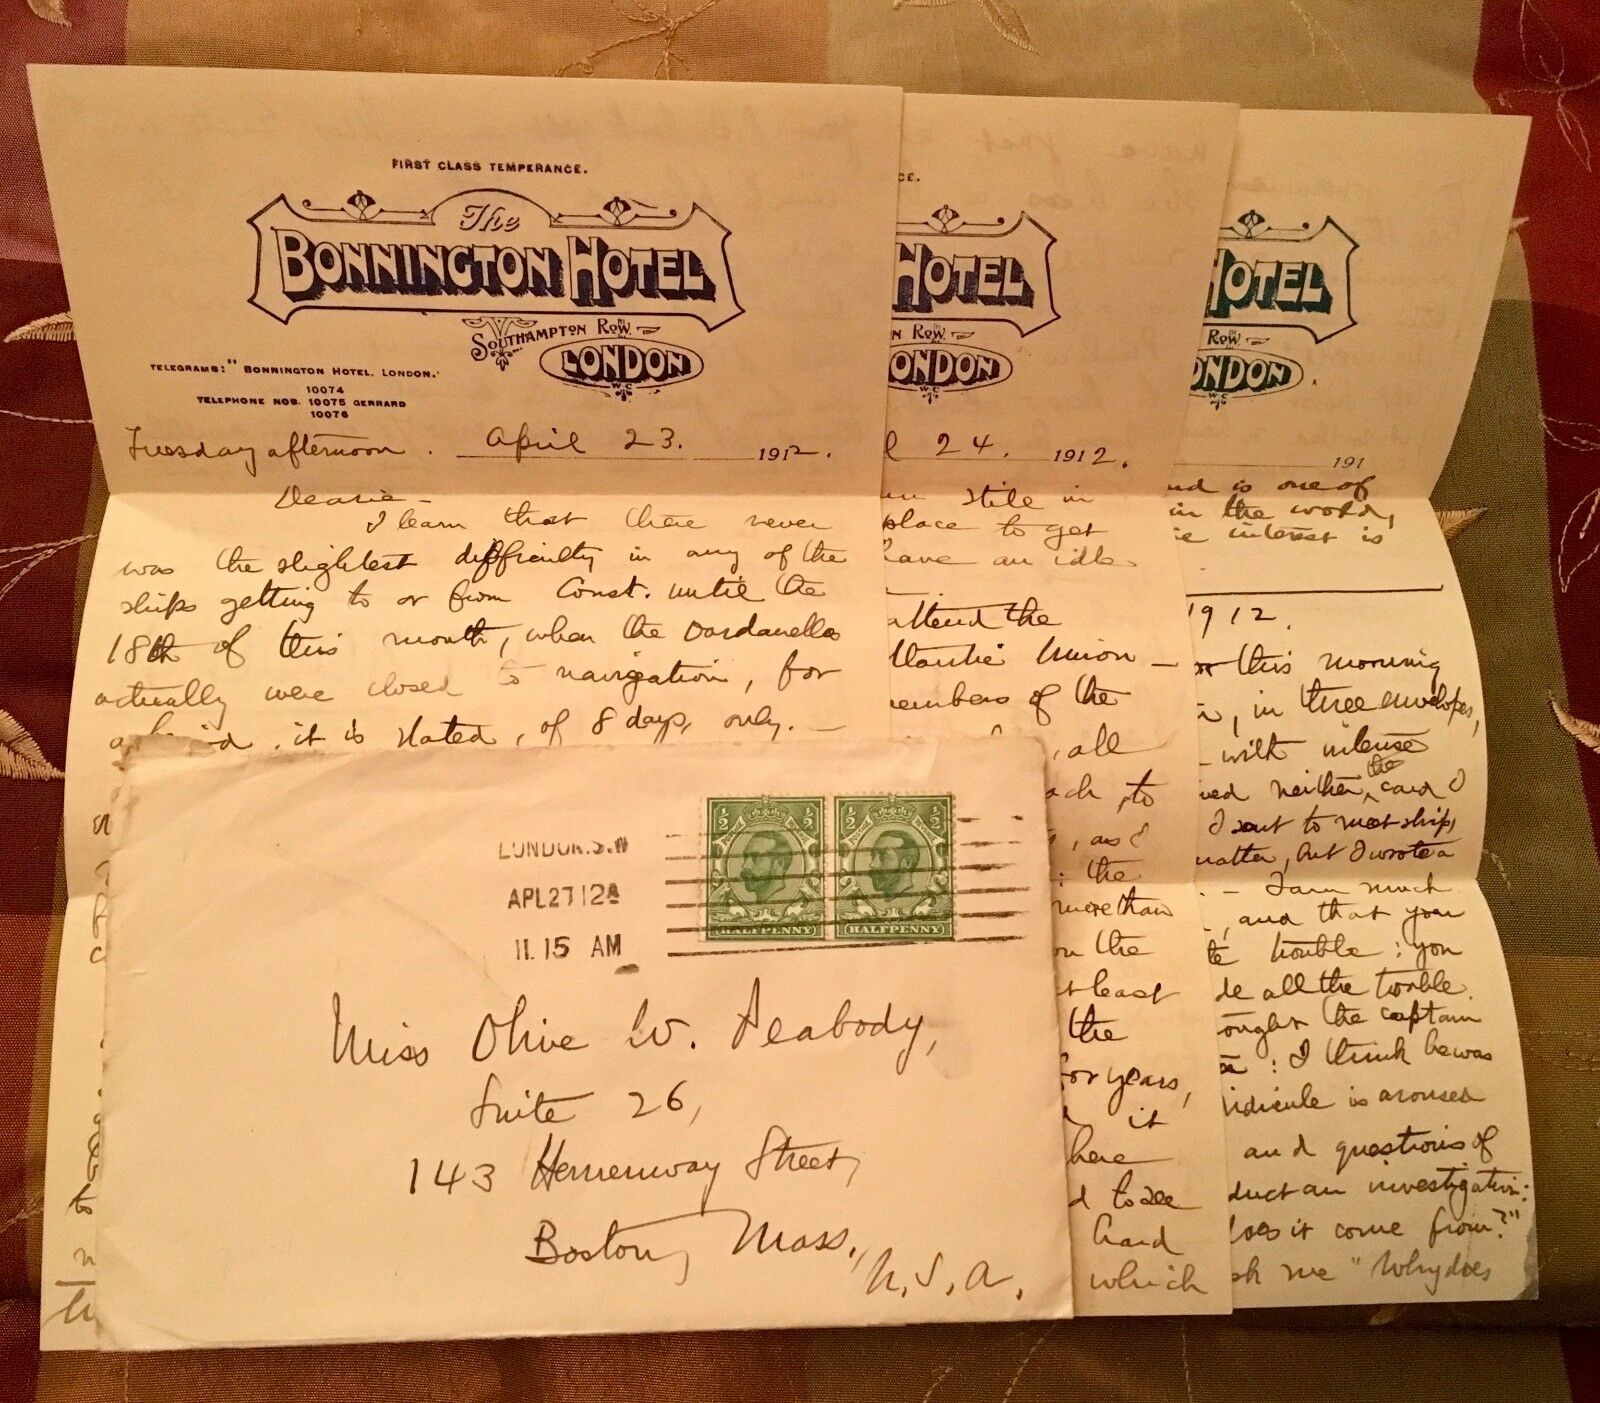 FIRST CLASS TEMPERANCE.
The
BONNINGTON HOTEL
SOUTHAMPTON ROW.
LONDON
W.C.
TELEGRAMS: "BONNINGTON HOTEL, LONDON.'
10074
TELEPHONE NOS. 10075 GERRARD
10076
Tuesday afternoon. April 23. 1912.
Dearie –
I learn that there never
was the slightest difficulty in any of the
ships getting to or from Const. until the
18th of this month, when the Dardanelles
actually were closed to navigation, for
it is stated, of 8 days, only. –
CE.
HOTEL
N ROW.
ONDON
W.C.
l 24. 1912.
still in
place to get
have an idle
attend the
tlantic Union –
embers of the
, all
ach, to
, as I
: the
more than
on the
t least
the
for years,
it
here
d to see
hard
which
HOTEL
ROW.
ONDON
W.C.
191
nd is one of
in the world,
e interest is
1912.
this morning
, in three envelopes,
– with intense
ved neither the card I
I sent to meet ship,
matter, but I wrote a
– I am much
, and that you
te trouble: you
de all the trouble.
ought the captain
: I think he was
ridicule is aroused
and questions of
duct an investigation:
does it come from?"
sk me "Why does
LONDON.S.W
APL 27 12
11.15 AM
½ ½
HALFPENNY
½ ½
HALFPENNY
Miss Olive W. Peabody,
Suite 26,
143 Hemenway Street,
Boston, Mass.,
U.S.A.